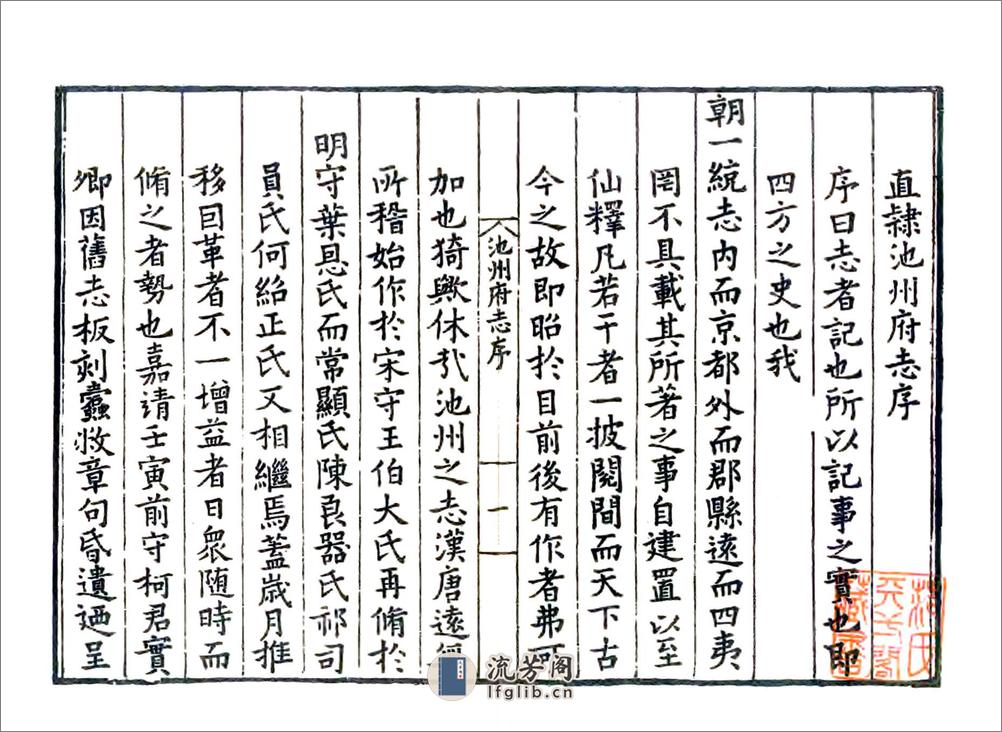 直隸池州府志序
序曰志者記也所以記事之實也即
四方之史也我
朝一統志内而京都外而郡縣遠而四夷
罔不具載其所著之事自建置以至
仙釋凡若干者一披閱間而天下古
今之故即昭於目前後有作者弗可
池州府志序
一
加也猗歟休哉池州之志漢唐遠無
所稽始作於宋守王伯大氏再脩於
明守葉恩氏而常顯氏陳良器氏祁司
員氏何紹正氏又相繼焉蓋歲月推
移因革者不一增益者日衆随時而
脩之者勢也嘉靖壬寅前守柯君實
卿因舊志板刻蠹敗章句昏遺迺呈
范氏天一閣藏書
流芳阁
lfglib.cn